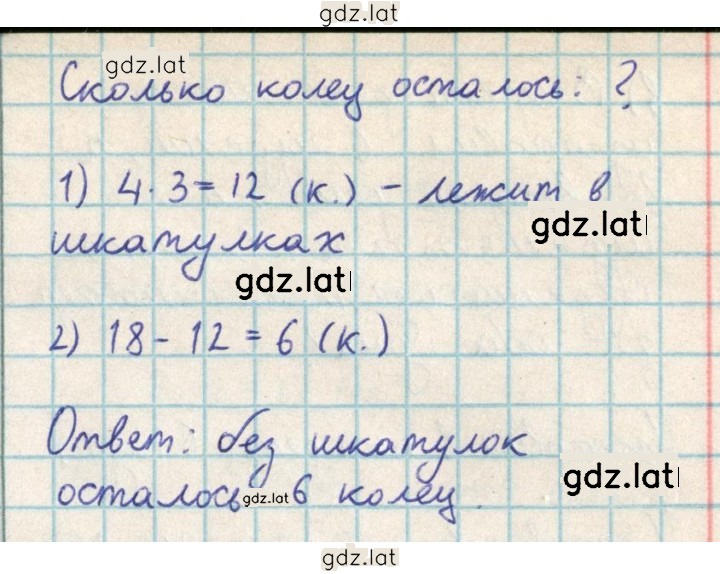 gdz.lat
gdz.lat
Сколько колец осталось: ?
1) 4 · 3 = 12 (к.) - лежит в
gdz.lat
шкатулках
gdz.lat
2) 18 - 12 = 6 (к.)
Ответ: без шкатулок
gdz.lat
осталось gdz.lat 6 колец
gdz.lat